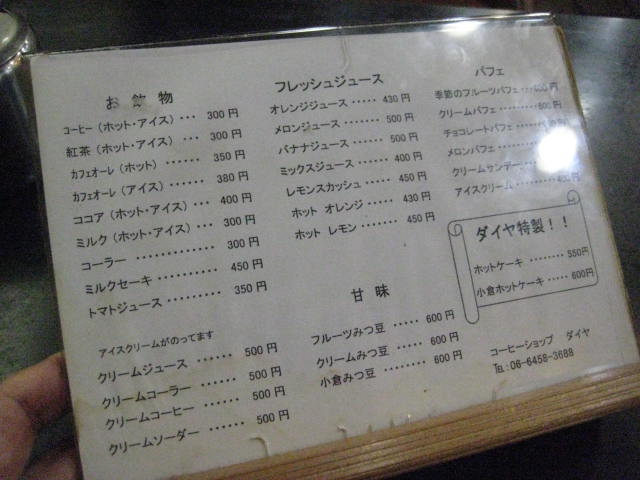 お飲物
コーヒー（ホット・アイス）・・・ 300円
紅茶（ホット・アイス）・・・ 300円
カフェオーレ（ホット）・・・・・・ 350円
カフェオーレ（アイス）・・・・・・ 380円
ココア（ホット・アイス）・・・ 400円
ミルク（ホット・アイス）・・・ 300円
コーラー・・・・・・・・・・・・・ 300円
ミルクセーキ・・・・・・・・・・ 450円
トマトジュース・・・・・・・・ 350円
アイスクリームがのってます
クリームジュース・・・・・・ 500円
クリームコーラー・・・・・・ 500円
クリームコーヒー・・・・・・ 500円
クリームソーダー・・・・・・ 500円
フレッシュジュース
オレンジジュース・・・・・ 430円
メロンジュース・・・・・・・ 500円
バナナジュース・・・・・・・ 500円
ミックスジュース・・・・・ 400円
レモンスカッシュ・・・・・ 450円
ホット オレンジ・・・・・ 430円
ホット レモン・・・・・・・ 450円
甘味
フルーツみつ豆・・・・・ 600円
クリームみつ豆・・・・・ 600円
小倉みつ豆・・・・・・・・ 600円
パフェ
季節のフルーツパフェ・・・
クリームパフェ・・・・・・・・・
チョコレートパフェ・・・
メロンパフェ
クリームサンデー
アイスクリーム・・・・・・・・
ダイヤ特製！！
ホットケーキ・・・・・・・・ 550円
小倉ホットケーキ・・・・・ 600円
コーヒーショップ ダイヤ
TEL:06-6458-3688